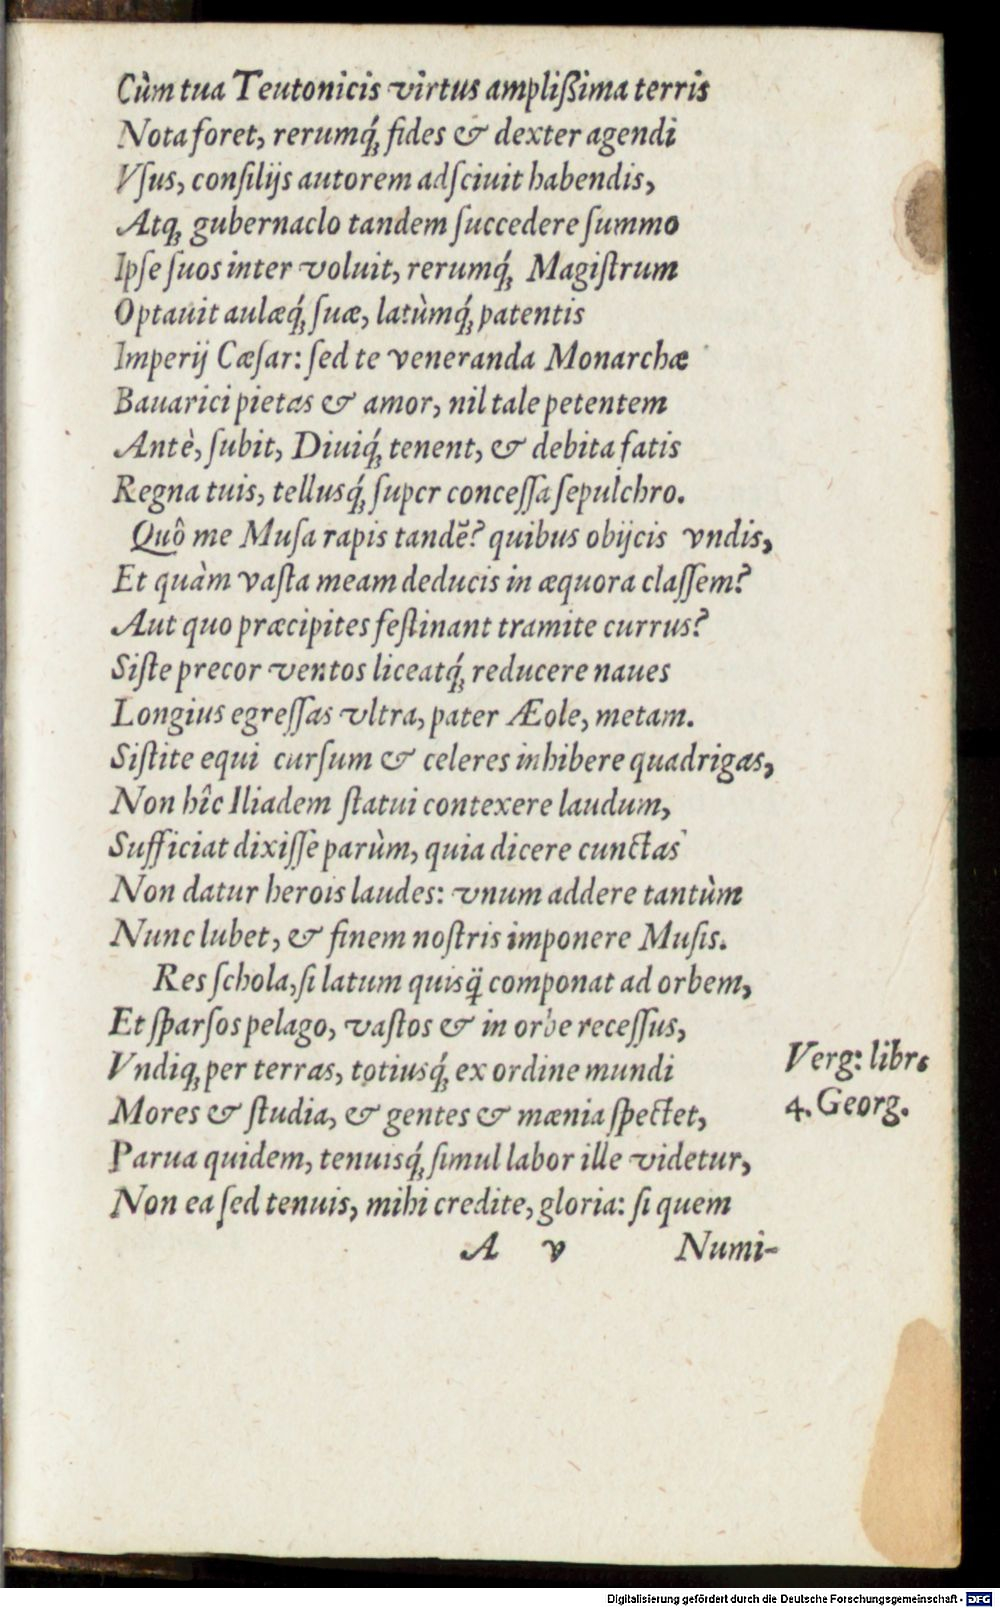 Cùm tua Teutonicis virtus ampliſsima terris
Nota foret, rerumq́; fides & dexter agendi
Vſus, conſilijs autorem adſciuit habendis,
Atq; gubernaclo tandem ſuccedere ſummo
Ipſe ſuos inter voluit, rerumq́; Magiſtrum
Optauit aulæq́; ſuæ, latùmq́; patentis
Imperij Cæſar: ſed te veneranda Monarchæ
Bauarici pietas & amor, nil tale petentem
Antè, ſubit, Diuiq́; tenent, & debita fatis
Regna tuis, tellusq́; ſuper conceſſa ſepulchro.
Quô me Muſa rapis tandẽ? quibus obijcis vndis,
Et quàm vaſta meam deducis in æquora claſſem?
Aut quo præcipites feſtinant tramite currus?
Siſte precor ventos liceatq́; reducere naues
Longius egreſſas vltra, pater Æole, metam.
Siſtite equi curſum & celeres inhibere quadrigas,
Non hîc Iliadem ſtatui contexere laudum,
Sufficiat dixiſſe parùm, quia dicere cunctas
Non datur herois laudes: vnum addere tantùm
Nunc lubet, & finem noſtris imponere Muſis.
Res ſchola, ſi latum quisq̃ componat ad orbem,
Et ſparſos pelago, vaſtos & in orbe receſſus,
Vndiq; per terras, totiusq́; ex ordine mundi
Mores & ſtudia, & gentes & mænia ſpectet,
Parua quidem, tenuisq́; ſimul labor ille videtur,
Non ea ſed tenuis, mihi credite, gloria: ſi quem
Verg: libr.
4. Georg.
A v Numi-
Digitalisierung gefördert durch die Deutsche Forschungsgemeinschaft - DFG